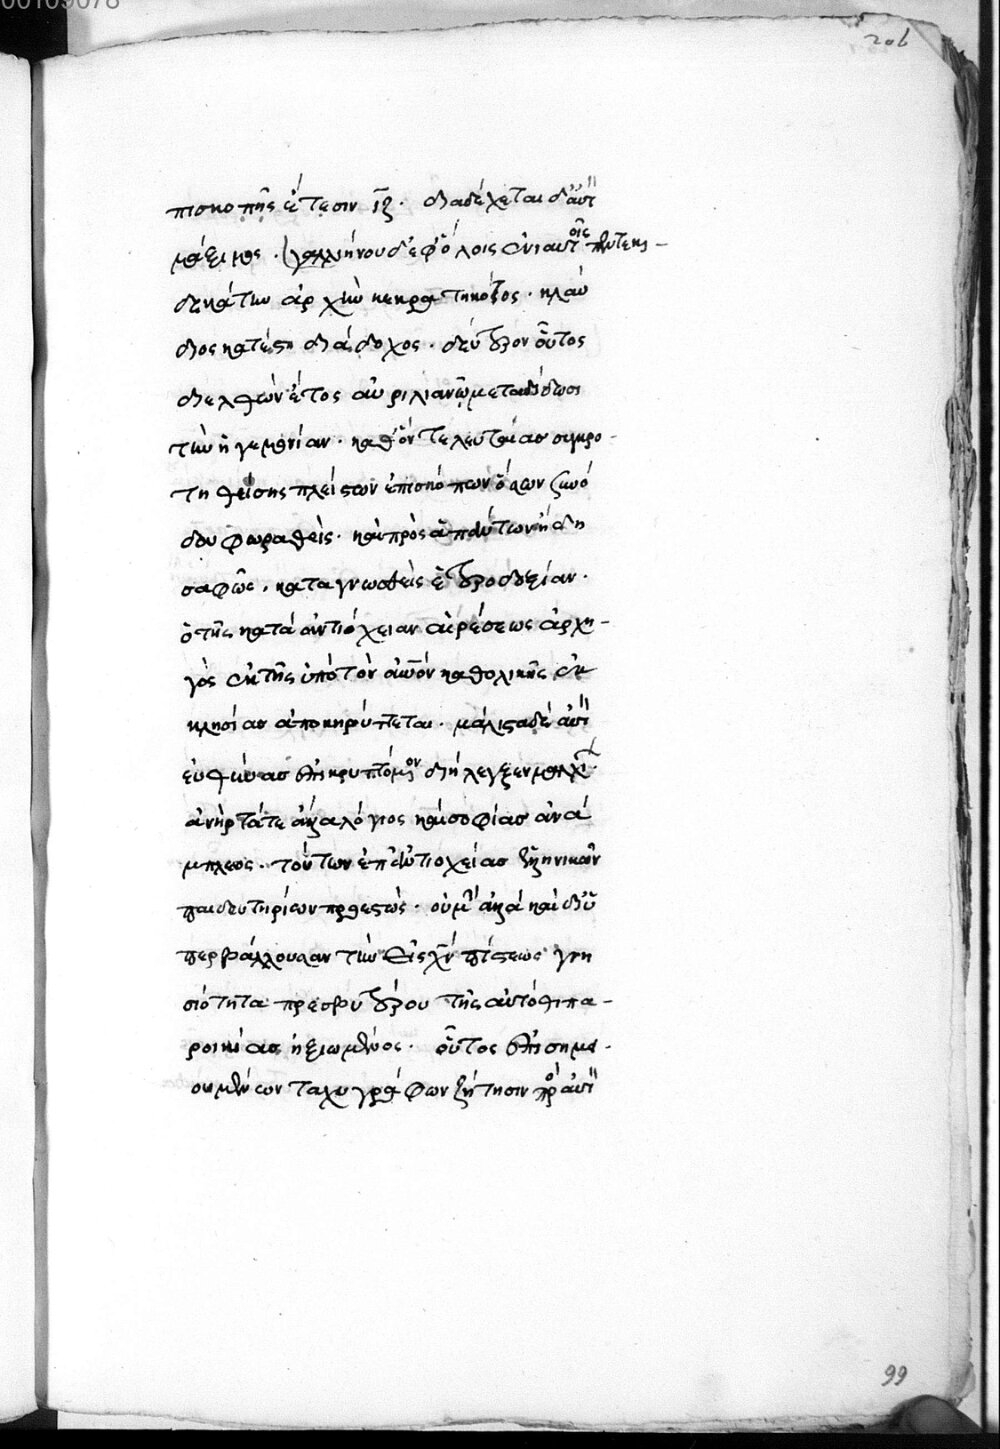 00109078
206
πισκοπῆς ἔτεσιν ιζ. διαδέχεται δ' αὐτ
μάξιμος. γαλλιήνου δ' ἐφ' ὅλοις ἐνιαυτοῖς πεντεκαι-
δεκάτην ἀρχὴν κεκρατηκότος. κλαύ
διος κατέστη διάδοχος. δεύτερον οὗτος
διελθὼν ἔτος αὐριλιανῷ μεταδίδωσι
τὴν ἡγεμονίαν. καθ' ὃν τελευταίας συγκρο-
τηθείσης πλείστων ἐπισκόπων ὅσων συνό
δου φωραθεὶς. καὶ πρὸς ἁπάντων ἤδη
σαφῶς. καταγνωσθεὶς ἑτεροδοξίαν.
ὁ τῆς κατὰ ἀντιόχειαν αἱρέσεως ἀρχη-
γὸς ἐκ τῆς ὑπὸ τὸν οὐνον καθολικῆς ἐκ
κλησίας ἀποκηρύττεται. μάλιστα δὲ αὐτ
εὐθύνας ἐπικρυπτόμενον διήλεγξεν μαλχ.
ἀνὴρ τά τε ἄλλα λόγιος καὶ σοφίας ἀνά
μπλεος. τούτων ἐπ' ἀντιοχείας ἑλληνικῶν
παιδευτηρίων προεστὼς. οὐ μὴν ἀλλὰ καὶ δι' ὑ
περβάλλουσαν τὴν εἰς χν πίστεως γνη
σιότητα πρεσβυτέρου τῆς αὐτόθι πα-
ροικίας ἠξιωμένος. οὗτος ἐπισημει-
ουμένων ταχυγράφων ζήτησιν πρὸ αὐτ
99